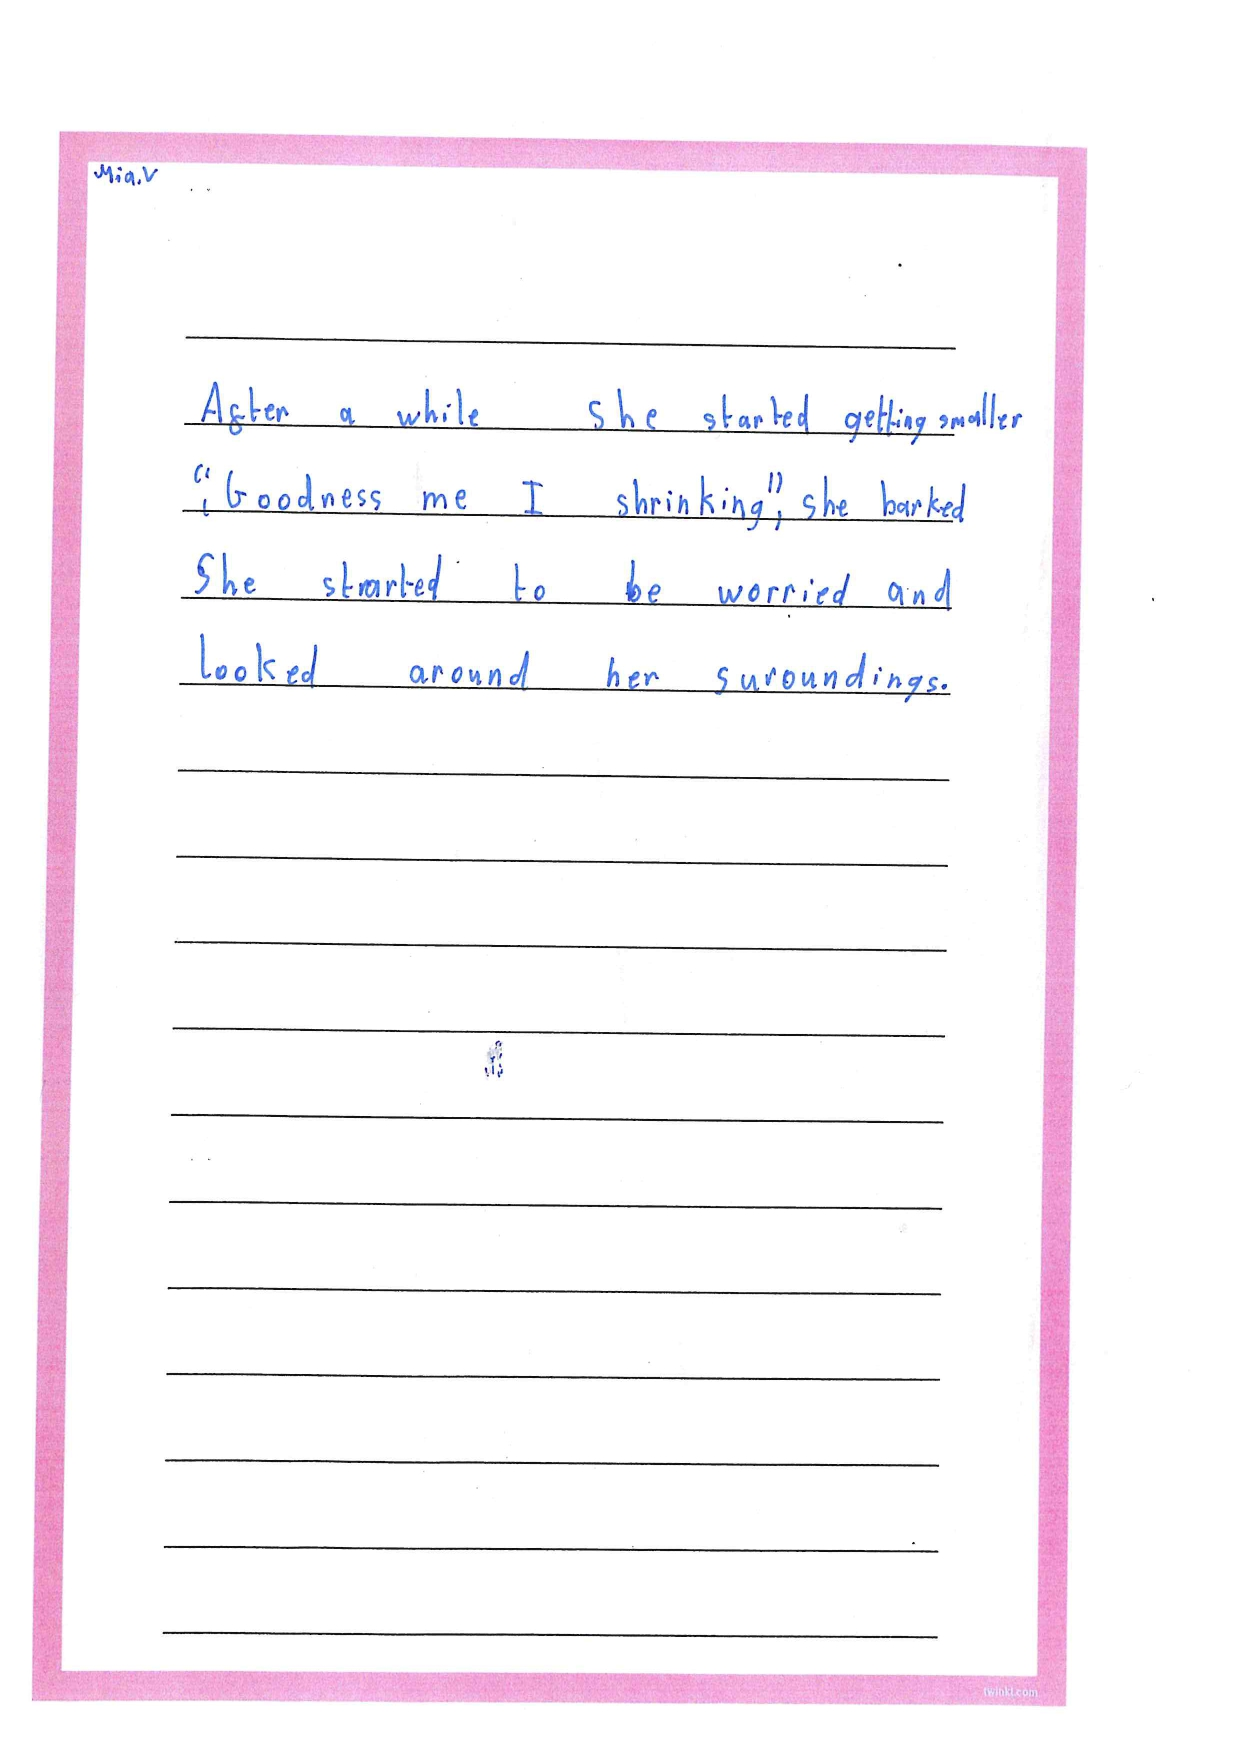 Mia.V
After a while she started getting smaller
", Goodness me I shrinking", she barked
She strarted to be worried and
looked around her suroundings.
twinkl.com